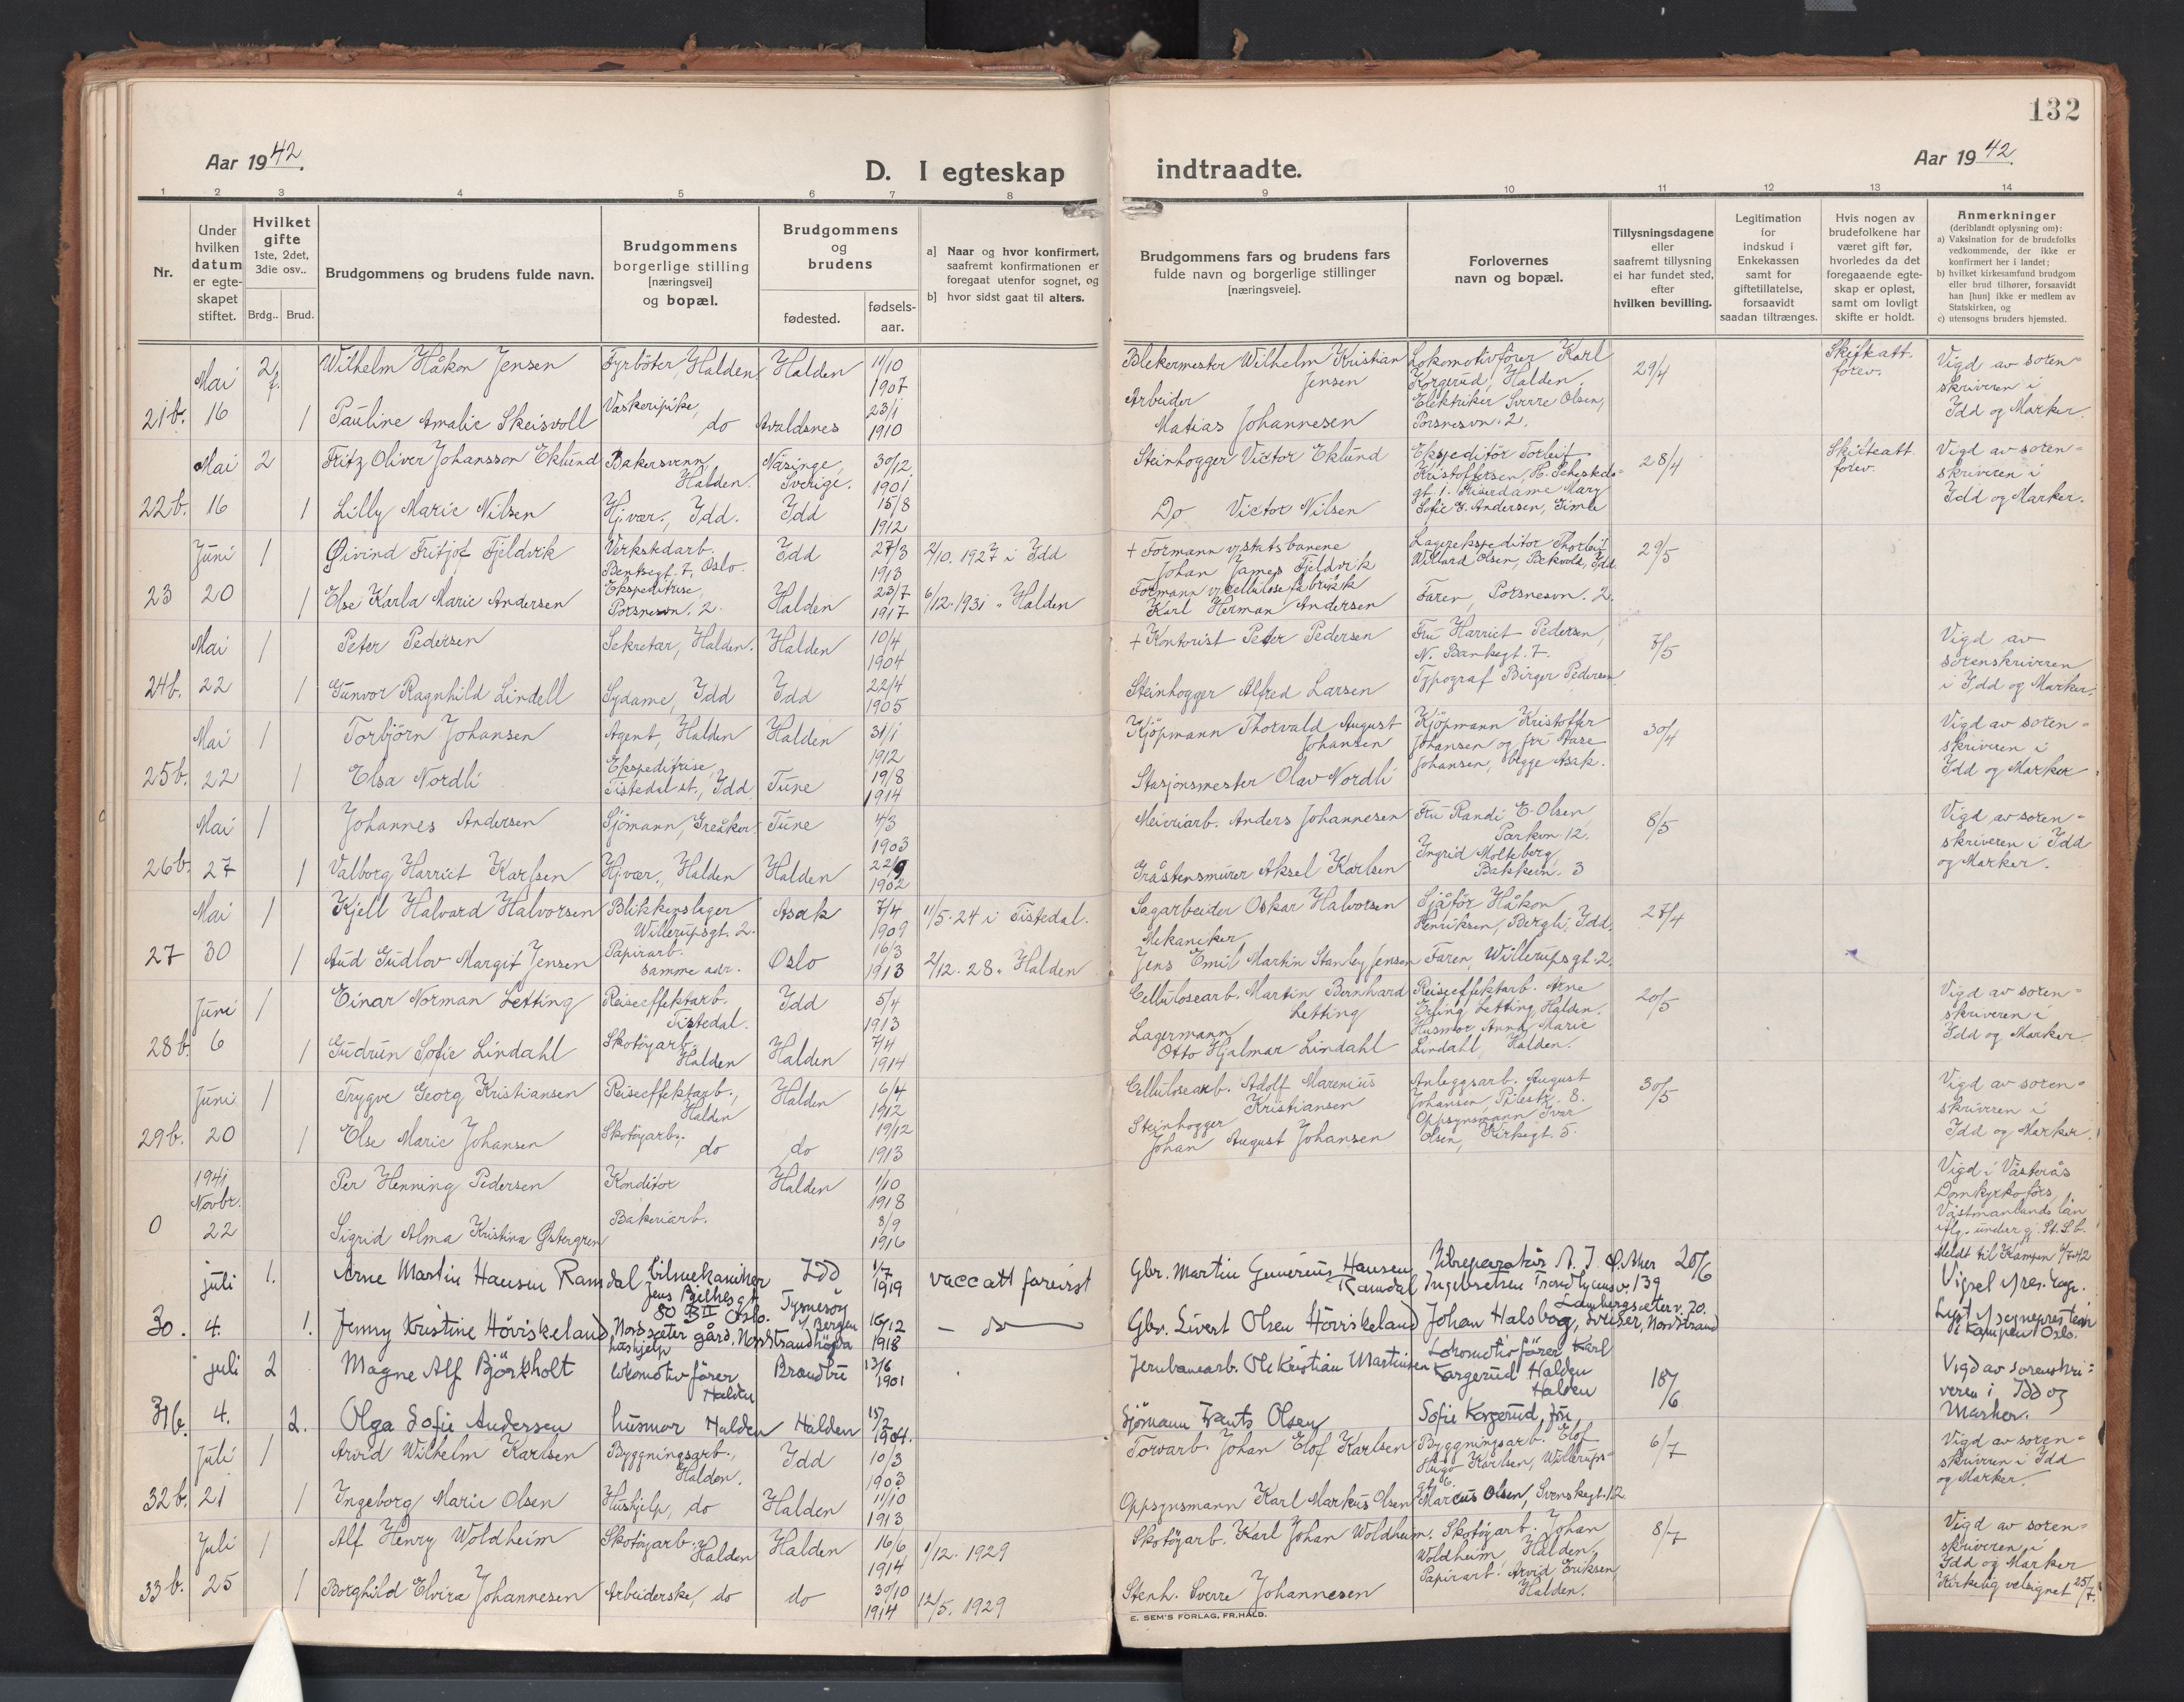 132
Aar 1942.
D. I egteskap indtraadte.
Aar 1942.
1 2 3 4 5 6 7 8 9 10 11 12 13 14
Nr.
Under hvilken datum er egteskapet stiftet.
Hvilket gifte 1ste, 2det, 3die osv..
Brdg.. Brud.
Brudgommens og brudens fulde navn.
Brudgommens borgerlige stilling [næringsvei] og bopæl.
Brudgommens og brudens
fødested.
fødsels-aar.
a] Naar og hvor konfirmert, saafremt konfirmationen er foregaat utenfor sognet, og
b] hvor sidst gaat til alters.
Brudgommens fars og brudens fars fulde navn og borgerlige stillinger [næringsveie].
Forlovernes navn og bopæl.
Tillysningsdagene eller saafremt tillysning ei har fundet sted, efter hvilken bevilling.
Legitimation for indskud i Enkekassen samt for giftetillatelse, forsaavidt saadan tiltrænges.
Hvis nogen av brudefolkene har været gift før, hvorledes da det foregaaende egteskap er opløst, samt om lovligt skifte er holdt.
Anmerkninger (deriblandt oplysning om):
a) Vaksination for de brudefolks vedkommende, der ikke er konfirmert her i landet;
b) hvilket kirkesamfund brudgom eller brud tilhører, forsaavidt han [hun] ikke er medlem av Statskirken, og
c) utensogns bruders hjemsted.
Mai 2 f. Wilhelm Håkon Jensen Fyrböter, Halden Halden 11/10 1907 Blekermester Wilhelm Kristian Jensen Lokomotivförer Karl Korgerud, Halden. 29/4 Skifteatt. forev. Vigd av sorenskriveren i Idd og Marker.
21b. 16 1 Pauline Amalie Skeisvoll Vaskeripike, do Avaldsnes 23/1 1910 Arbeider Matias Johannesen Elektriker Sverre Olsen, Porsnesvn. 2.
Mai 2 Fritz Oliver Johansson Eklund Bakersvenn, Halden. Näsinge, Sverige. 30/12 1901 Steinhogger Victor Eklund Ekspeditör Torleif Kristoffersen, H. Schesteds gt. 1. 28/4 Skifteatt. forev. Vigd av sorenskriveren i Idd og Marker.
22b. 16 1 Lilly Marie Nilsen Hj.vær., Idd. Idd 15/8 1912 Do Victor Nilsen Mary Sofie E. Andersen, Gimle
Juni 1 Øivind Fritjof Fjeldvik Verkstedarb. Bentsegt. 7, Oslo. Idd 27/3 1913 2/10. 1927 i Idd + Formann v/statsbanene Johan James Fjeldvik Lagerekspeditör Thorleif Willard Olsen, Bekvold, Idd 29/5
23 20 1 Else Karla Marie Andersen Ekspeditrise, Porsnesvn. 2. Halden 23/7 1917 6/12. 1931 " Halden Formann v/Cellulosefabrikk Karl Herman Andersen Faren, Porsnesvn. 2.
Mai 1 Peter Pedersen Sekretær, Halden. Halden 10/4 1904 + Kontorist Peter Pedersen Fru Harriet Pedersen, N. Bankegt. 7. 7/5 Vigd av sorenskriveren i Idd og Marker.
24b. 22 1 Gunvor Ragnhild Lindell Sydame, Idd Idd 22/4 1905 Steinhogger Alfred Larsen Typograf Birger Pedersen
Mai 1 Torbjörn Johansen Agent, Halden Halden 31/1 1912 Kjöpmann Thorvald August Johansen Kjöpmann Kristoffer Johansen og fru Aase Johansen, begge Asak. 30/4 Vigd av sorenskriveren i Idd og Marker
25b. 22 1 Elsa Nordli Ekspeditrise, Tistedal st., Idd Tune 19/8 1914 Stasjonsmester Olav Nordli
Mai 1 Johannes Andersen Sjömann, Greåker. Tune 4/3 1903 Meieriarb. Anders Johannesen Fru Randi E. Olsen, Parkvn. 12. 8/5 Vigd av sorenskriveren i Idd og Marker.
26b. 27 1 Valborg Harriet Karlsen Hj.vær., Halden Halden 22/9 1902 Gråstensmurer Aksel Karlsen Ingrid Molteberg, Bakkevn. 3
Mai 1 Kjell Halvard Halvorsen Blikkenslager Willerupsgt. 2. Asak 7/4 1909 11/5. 24 i Tistedal. Sagarbeider Oskar Halvorsen Sjåför Håkon Henriksen, Bergli, Idd. 27/4
27 30 1 Aud Gudlov Margit Jensen Papirarb. samme adr. Oslo 16/3 1913 2/12. 28 " Halden Mekaniker Jens Emil Martin Stanley Jensen Faren, Willerupsgt. 2.
Juni 1 Einar Norman Letting Reiseeffektarb. Tistedal. Idd 5/4 1913 Cellulosearb. Martin Bernhard Letting Reiseeffektarb. Arne Erling Letting, Halden. 20/5 Vigd av sorenskriveren i Idd og Marker.
28b. 6 1 Gudrun Sofie Lindahl Skotöyarb. Halden Halden 7/4 1914 Lagermann Otto Hjalmar Lindahl Husmor Anna Marie Lindahl, Halden.
Juni 1 Trygve Georg Kristiansen Reiseeffektarb., Halden Halden 6/4 1912 Cellulosearb. Adolf Marenius Kristiansen Anleggsarb. August Johansen, Pilestr. 8. 30/5 Vigd av sorenskriveren i Idd og Marker.
29b. 20 1 Else Marie Johansen Skotöyarb. do do 19/12 1913 Steinhogger Johan August Johansen Oppsynsmann Iver Olsen, Kirkegt. 5.
1941 Novbr. Per Henning Pedersen Konditor Halden 1/10 1918 Vigd i Västerås Domkyrkoförs, Västmanlands län
0 22 Sigrid Alma Kristina Østergren Bakeriarb. 3/9 1916
juli 1. Arne Martin Hansen Ramdal bilmekaniker Jens Bjelkesgt. 80 B II Oslo. Idd 1/7 1919 vacc att foreirst Gbr. Martin Gunerius Hansen Ramdal Ingebretsen Trondhjemsv. 139 20/6 Meldt til Kampen 4/7-42
30. 4. 1. Jenny Kristine Höviskeland Nordseter gård, Nordstrandhögda hushjelp Tysnesöy v/Bergen 16/12 1918 — do — Gbr. Sivert Olsen Höviskeland Johan Halsbog, Sveiser, Nordstrand Lambergseterv. 20. Kampen Oslo.
juli 2 Magne Alf Björkholt lokomotivförer Halden Brandbu 13/6 1901 Jernbanearb. Ole Kristian Martinsen Lokomotivförer Karl Korgerud Halden Halden 18/6 Vigd av sorenskriveren i Idd og Marker.
31b. 4. 2. Olga Sofie Andersen husmor Halden Halden 15/2 1904. Sjömann Frants Olsen Sofie Korgerud, fru,
Juli 1 Arvid Wilhelm Karlsen Byggningsarb., Halden. Idd 10/3 1903 Torvarb. Johan Elof Karlsen Byggningsarb. Elof Hugo Karlsen, Willerupsgt. 6. 6/7 Vigd av sorenskriveren i Idd og Marker.
32b. 21 1 Ingeborg Marie Olsen Hushjelp, do Halden 11/10 1913 Oppsynsmann Karl Markus Olsen Marcus Olsen, Svenskegt. 12
Juli 1 Alf Henry Woldheim Skotöyarb. Halden Halden 16/6 1914 1/12. 1929 Skotöyarb. Karl Johan Woldheim. Skotöyarb. Johan Woldheim, Halden. 8/7 Vigd av sorenskriveren i Idd og Marker
33b. 25 1 Borghild Elvira Johannesen Arbeiderske, do do 30/10 1914 12/5. 1929 Stenh. Sverre Johannesen Papirarb. Arvid Eriksen, Halden. Kirkelig velsignet 25/7.
E. SEM'S FORLAG, FR.HALD.